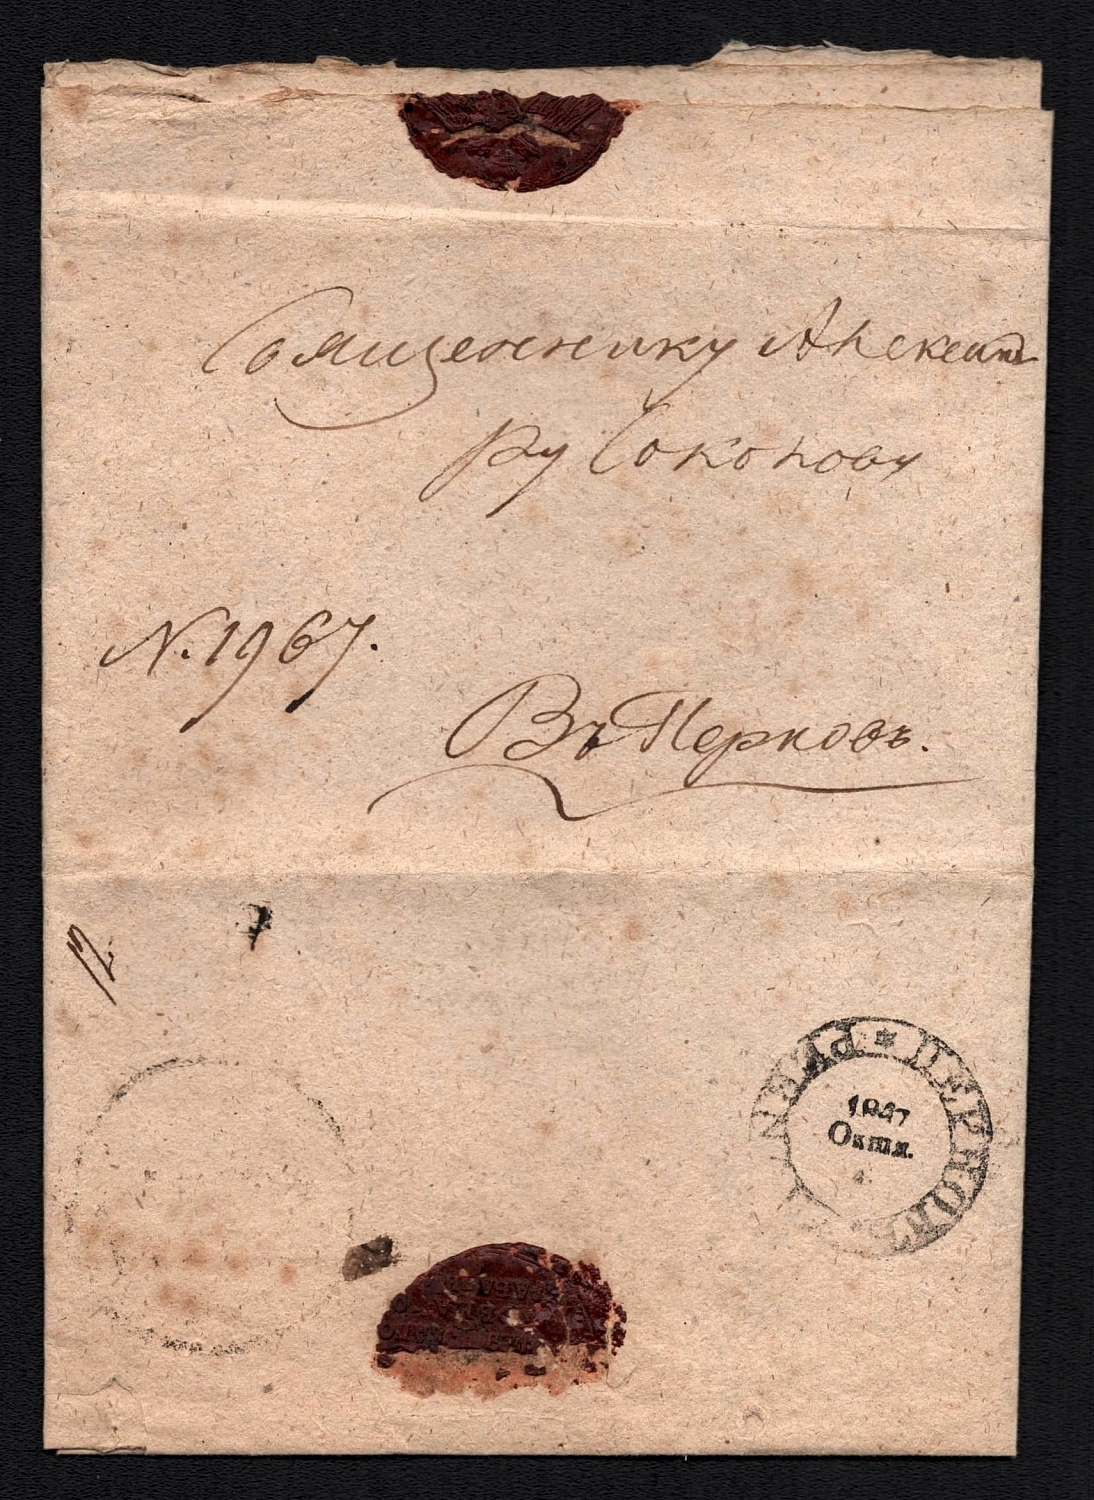 Священнику Александ
ру Соколову
N. 1967.
Въ Перновъ.
12
ПЕРНОВЪ
1847
Октя.
4.